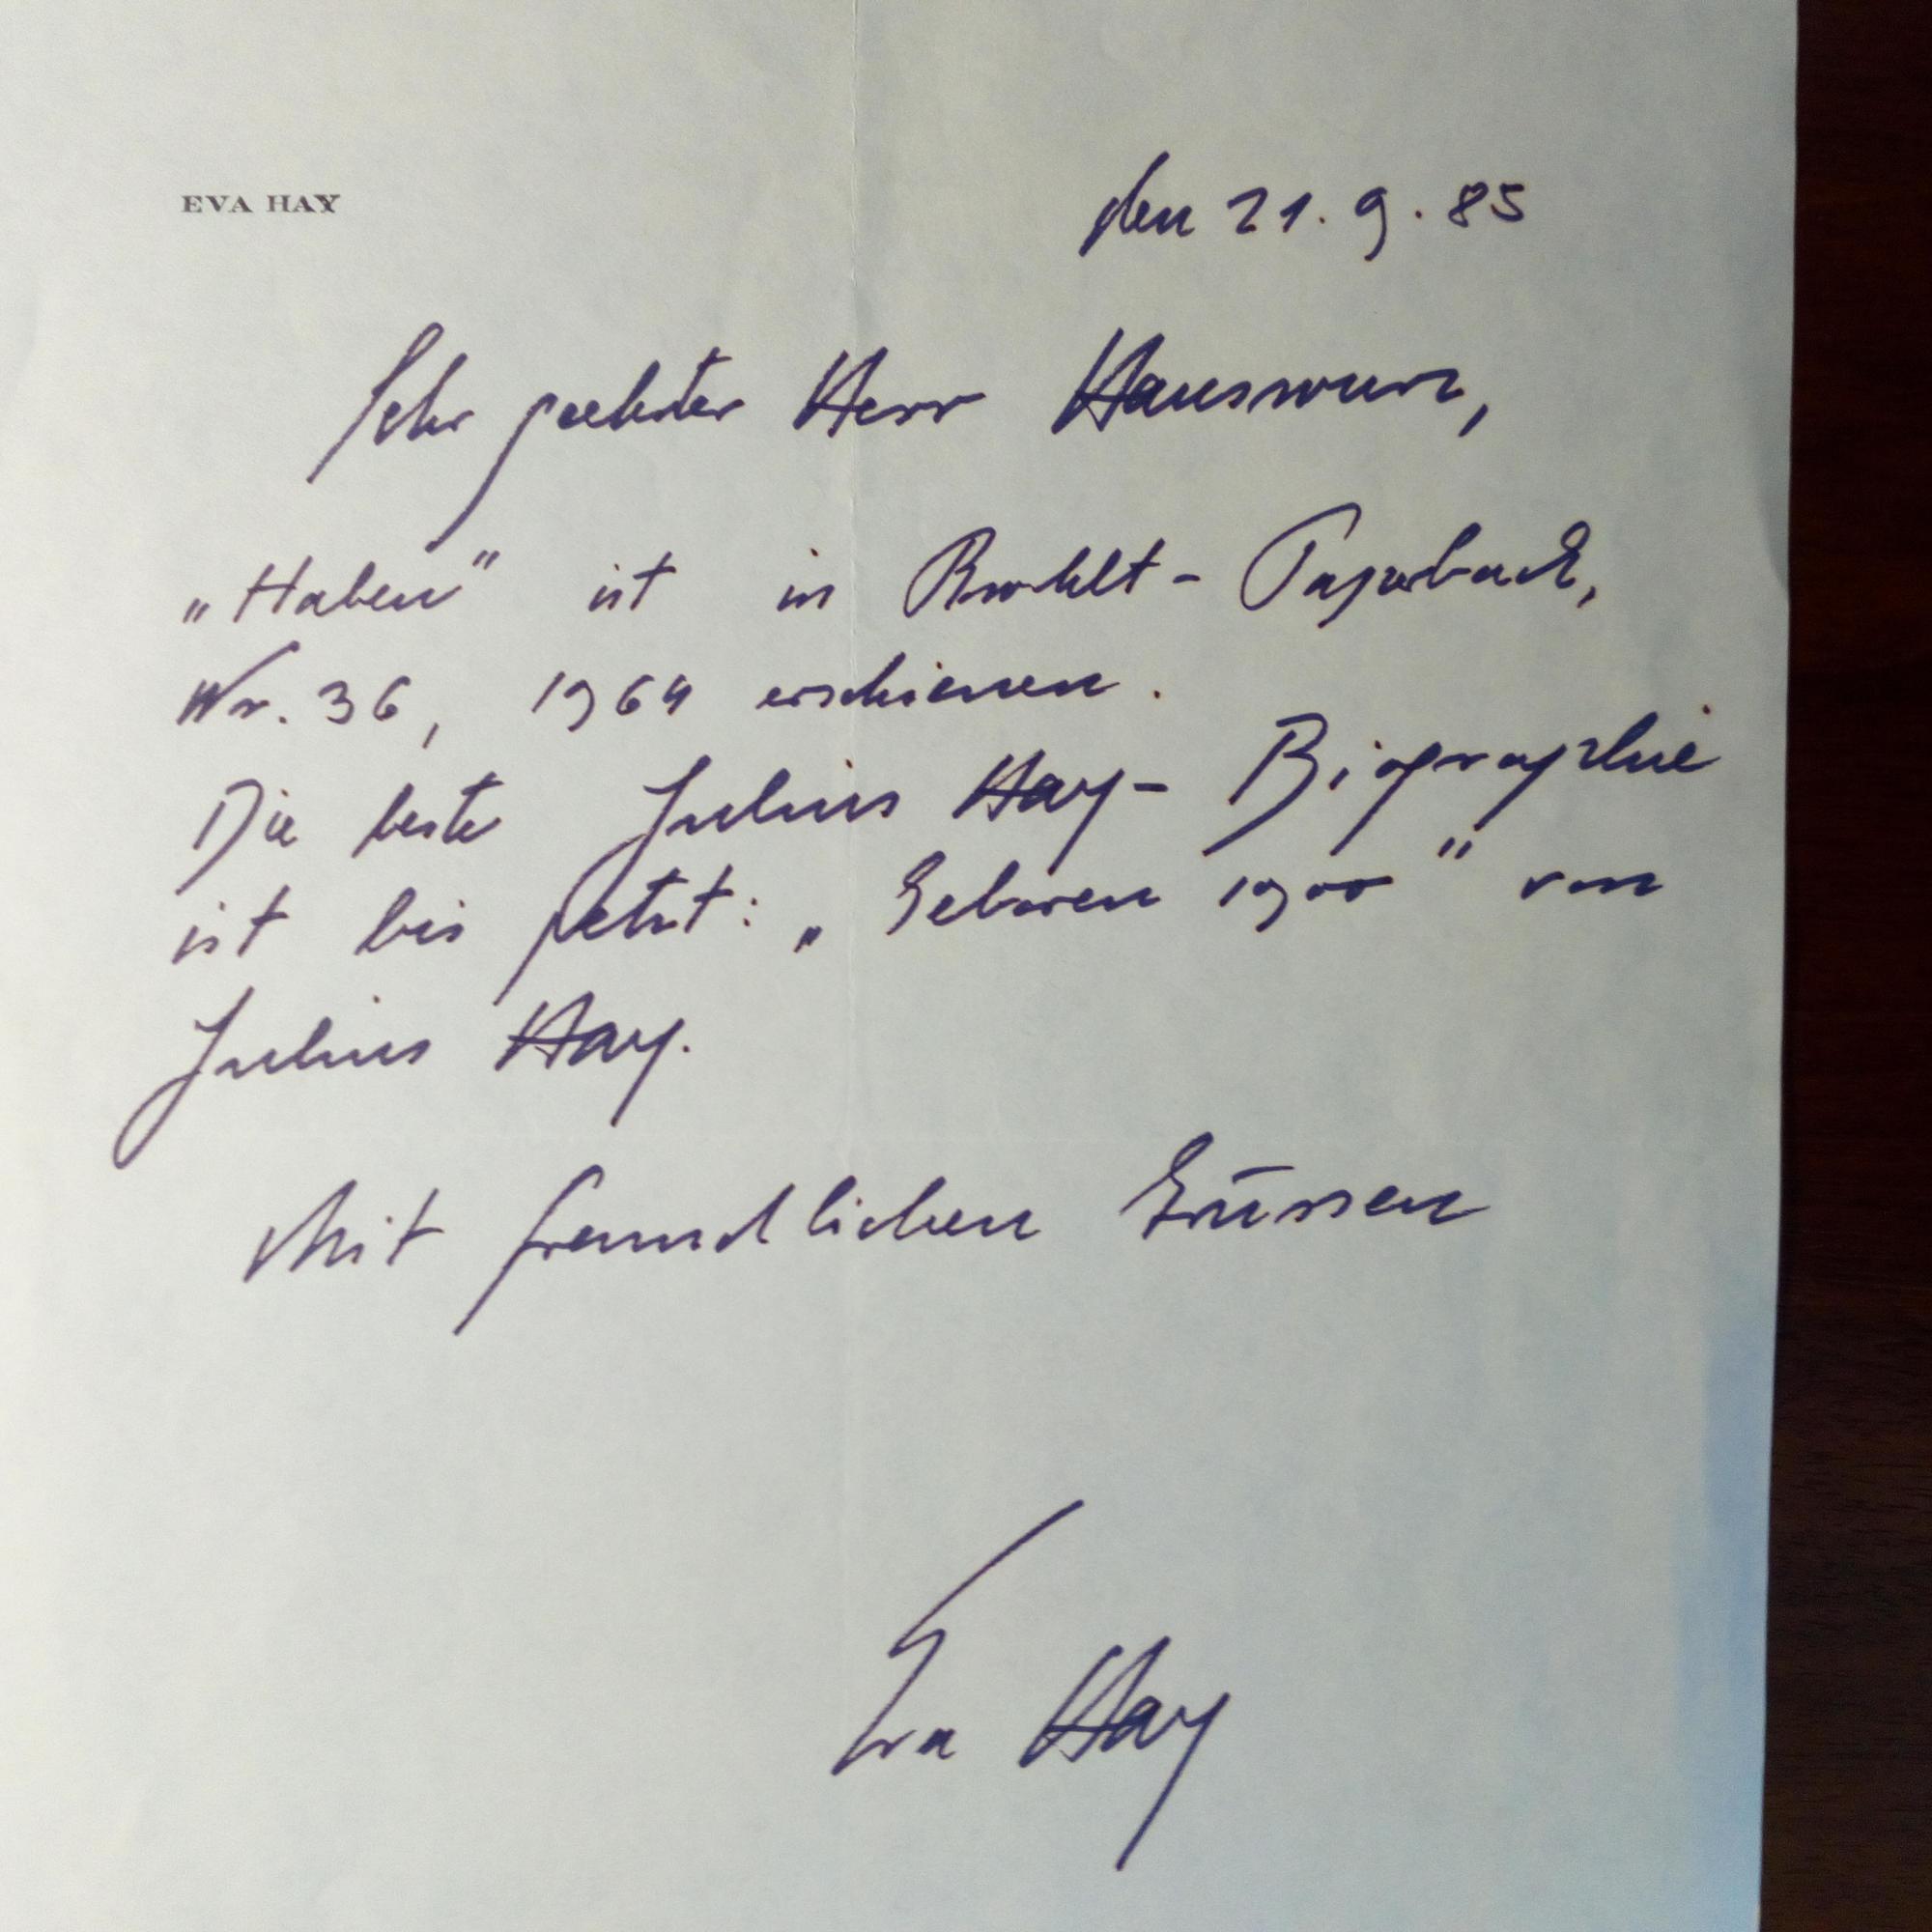 EVA HAY
den 21. 9. 85
Sehr geehrter Herr
„Haben" ist in Rowohlt - Paperback,
Nr. 36, 1964 erschienen.
Die beste Julius Hay - Biographie
ist bis jetzt: „Geboren 1900" von
Julius Hay.
Mit freundlichen Grüssen
Eva Hay